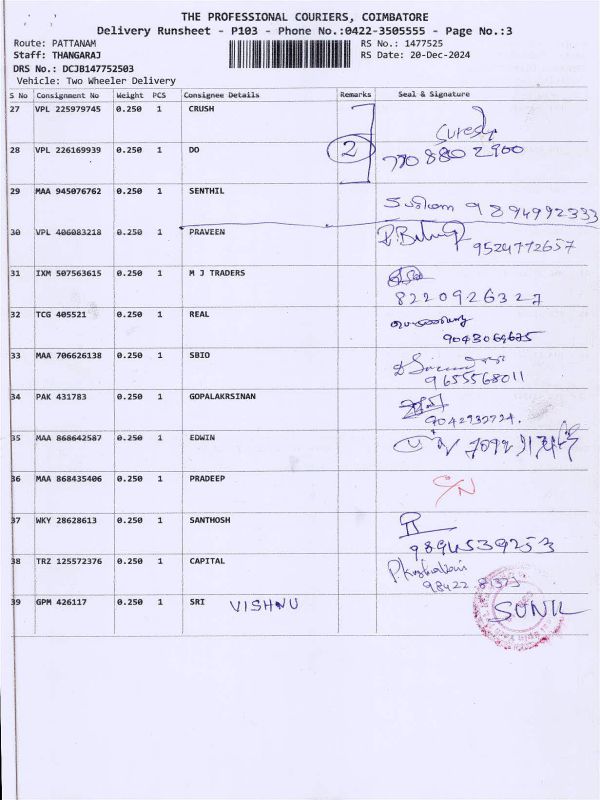 THE PROFESSIONAL COURIERS, COIMBATORE
Delivery Runsheet - P103 - Phone No.:0422-3505555 - Page No.:3
Route: PATTANAM RS No.: 1477525
Staff: THANGARAJ RS Date: 20-Dec-2024
DRS No.: DCJB147752503
Vehicle: Two Wheeler Delivery
S No Consignment No Weight PCS Consignee Details Remarks Seal & Signature
27 VPL 225979745 0.250 1 CRUSH
28 VPL 226169939 0.250 1 DO 2 770 880 2900
29 MAA 945076762 0.250 1 SENTHIL 9894992333
30 VPL 406083218 0.250 1 PRAVEEN 9524772657
31 IXM 507563615 0.250 1 M J TRADERS
8220926327
32 TCG 405521 0.250 1 REAL
33 MAA 706626138 0.250 1 SBIO
9655568011
34 PAK 431783 0.250 1 GOPALAKRSINAN
35 MAA 868642587 0.250 1 EDWIN
36 MAA 868435406 0.250 1 PRADEEP C/N
37 WKY 28628613 0.250 1 SANTHOSH
9894539253
38 TRZ 125572376 0.250 1 CAPITAL
39 GPM 426117 0.250 1 SRI VISHNU SUNIL